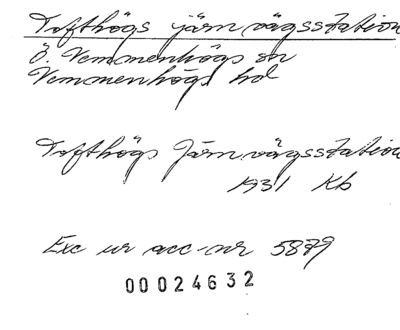 Tofthögs järnvägsstation
Ö. Vemmenhögs sn
Vemmenhögs hd
Tofthögs Järnvägsstation
1931 Kb
Exc ur acc-nr 5879
00024632